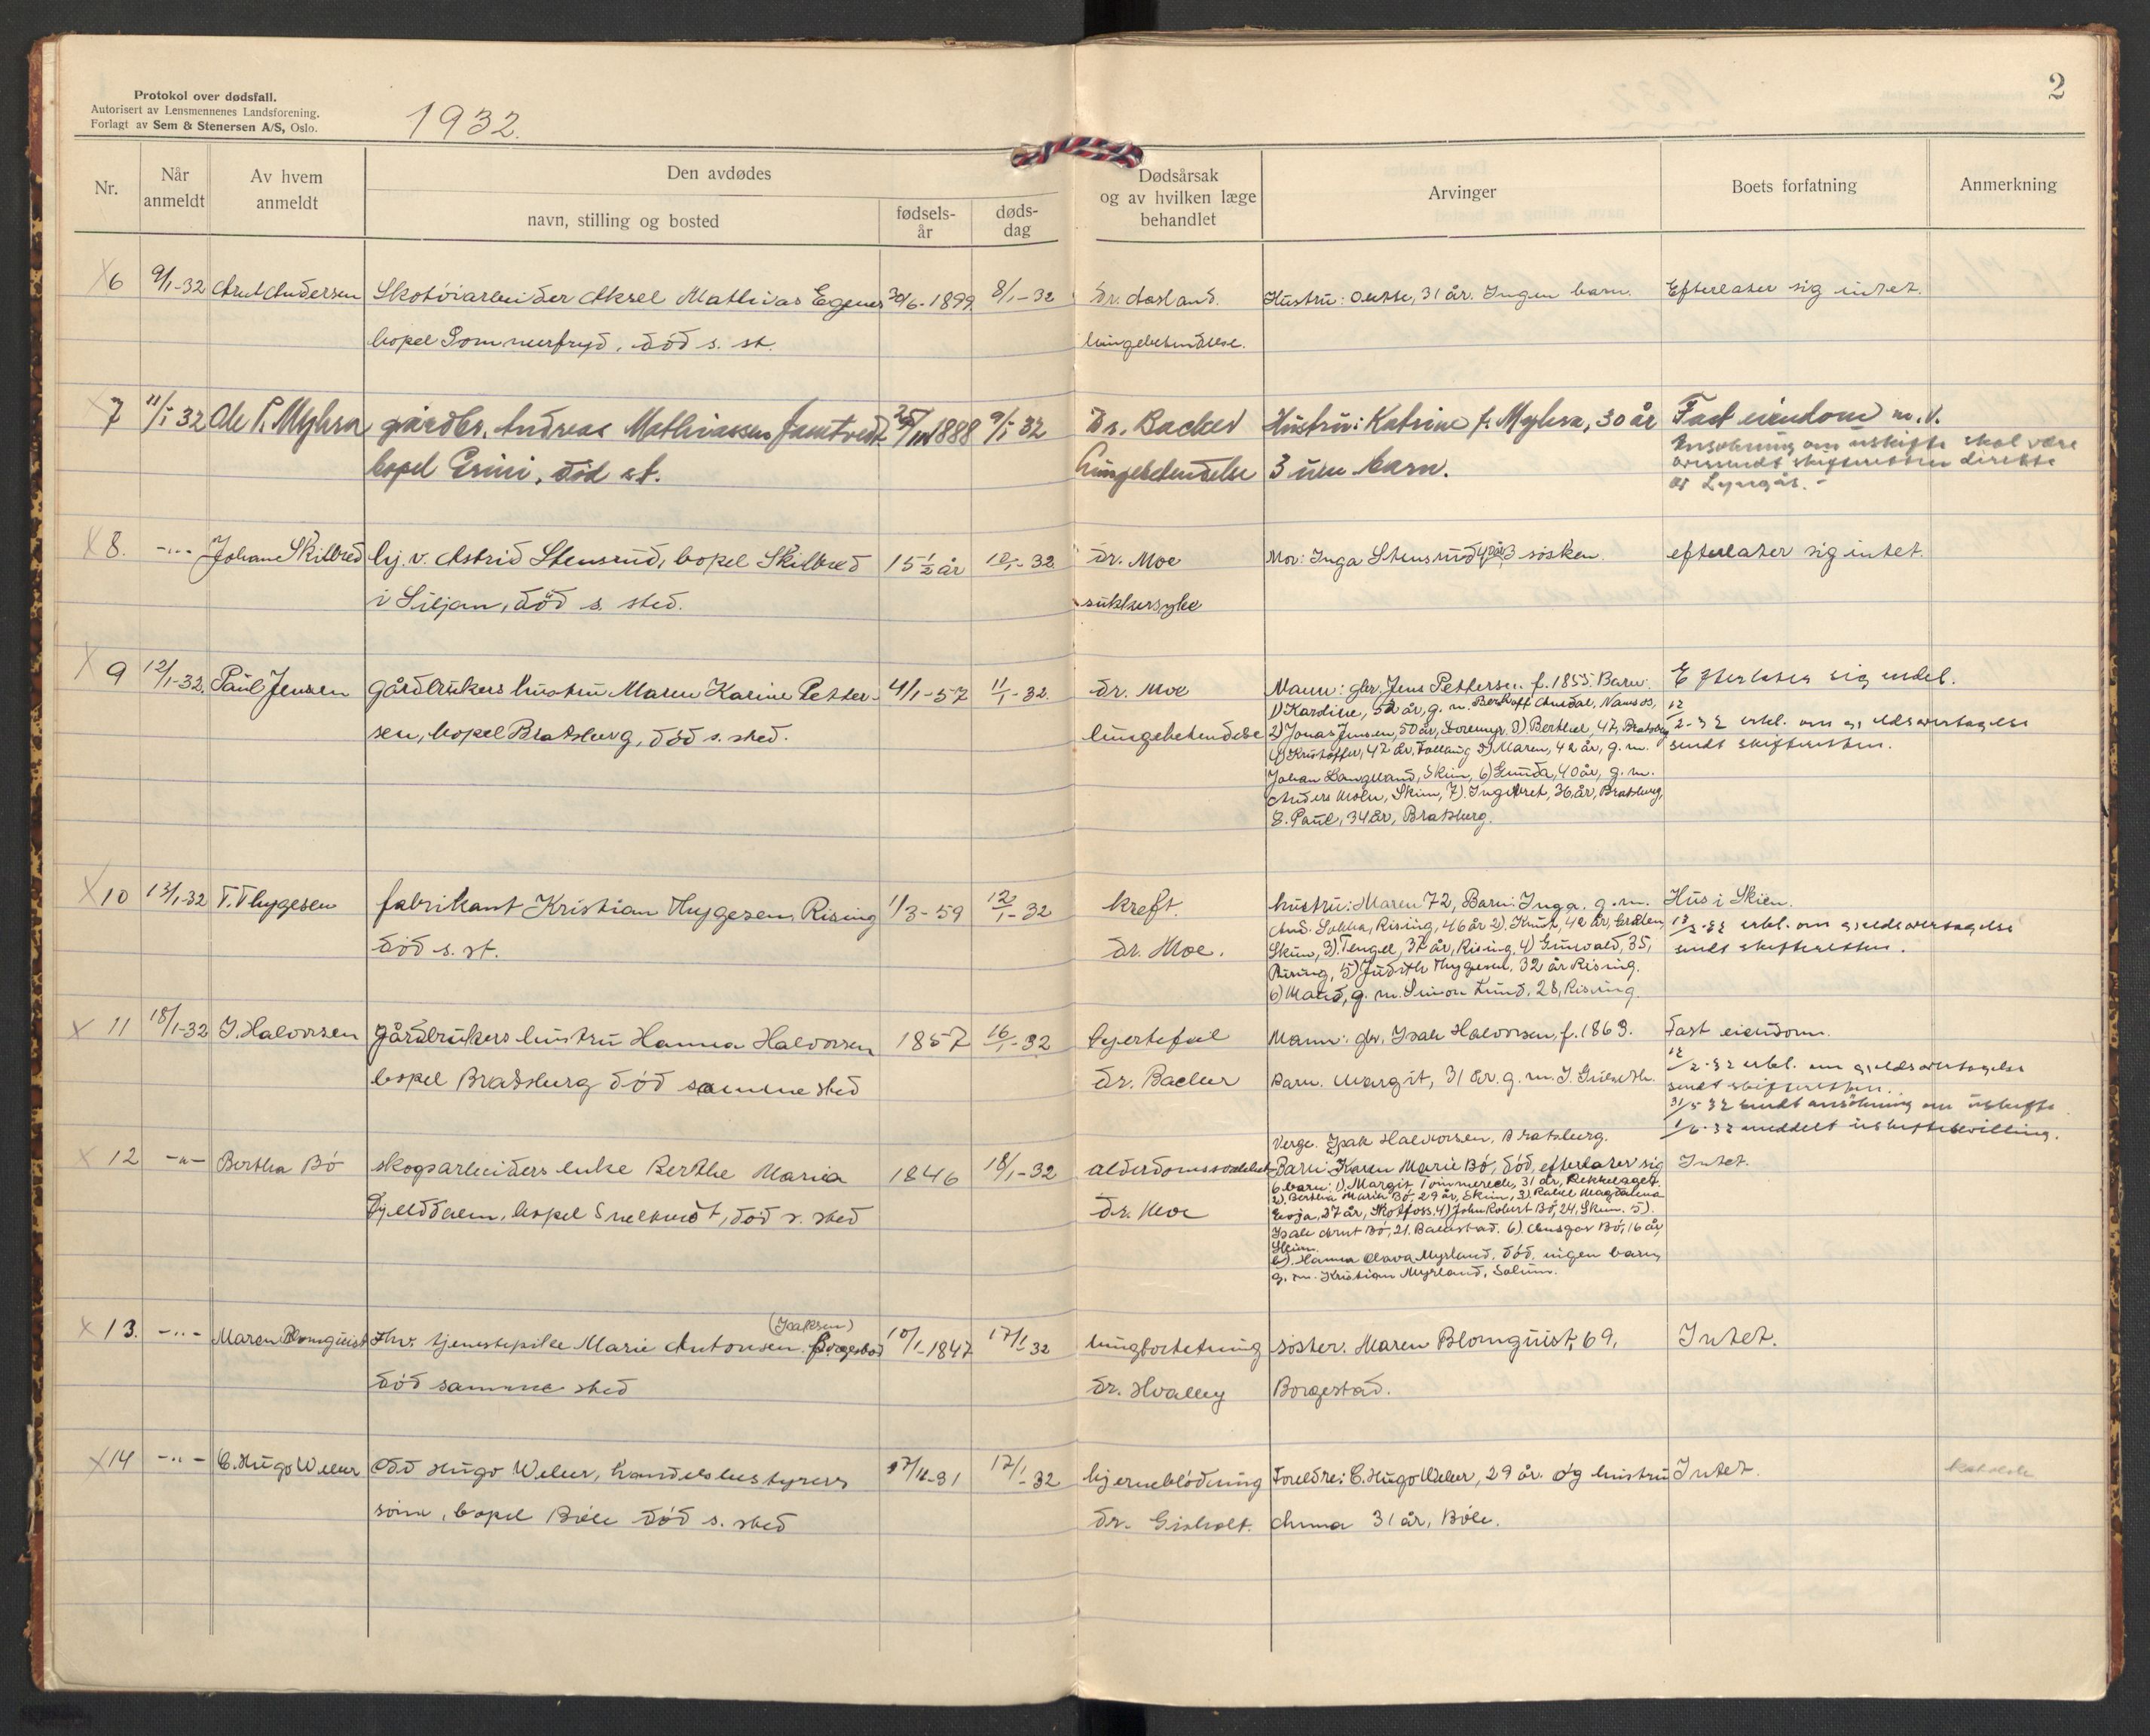 Protokol over dødsfall.
Autorisert av Lensmennenes Landsforening.
Forlagt av Sem & Stenersen A/S, Oslo.
1932.
2
Nr.
Når anmeldt
Av hvem anmeldt
Den avdødes
navn, stilling og bosted
fødsels-år
døds-dag
Dødsårsak og av hvilken læge behandlet
Arvinger
Boets forfatning
Anmerkning
6 9/1-32 Arnt Andersen Skotöiarbeider Aksel Mathias 30/6-1899 8/1-32 Dr. Aasland. Hustru: 31 år. Ingen barn. Efterlater sig intet.
bopel Sommerfryd, död s. st. lungebetendelse.
7 11/1 32 Ole P. Myhra gårdbr. Andreas Mathiassen Jamtvedt 1888 9/1 32 Dr. Backer Hustru: Katrine f. Myhra, 30 år Fast eiendom m. v.
bopel Grini, död st. Lungebetendelse 3 um barn. Ansökning om uskifte skal være
oversendt skifteretten direkte
av
8. -"- Johan Skilbred hj. v. Astrid Stensrud, bopel Skilbred 15 1/2 år 10/1-32 Dr. Moe Mor: Inga Stensrud 40 år, 3 sösken. efterlater sig intet.
i Siljan, död s. sted. sukkersyke
9 12/1-32. Paul Jensen Gårdbrukers hustru Maren Karine Petter- 4/1-57 11/1-32. Dr. Moe Mann: gbr. Jens Pettersen f. 1855. Barn: Efterlater sig endel.
1) Karoline, 52 år, g. m. Namsos,
sen, bopel Bratsberg, död s. sted. lungebetendelse 2) Jonas Jensen, 50 år, 3) Berthel, 47, Bratsberg 12/2-32 erkl. om gjeldsovertagelse
4) Kristoffer, 42 år, 5) Maren, 42 år, g. m. sendt skifteretten.
Johan Langeland, Skien, 6) Gunda, 40 år, g. m.
Anders Moen, Skien, 7). Ingebret, 36 år, Bratsberg,
8. Paul, 34 år, Bratsberg.
10 13/1-32 T. Thygesen fabrikant Kristian Thygesen, Rising 1/3-59 12/1-32 kreft. hustru: Maren 72, Barn: Inga. g. m. Hus i Skien.
And. Rising, 46 år 2). Knut, 42 år, 13/2-32 erkl. om gjeldsovertagelse
död s. st. Dr. Moe. Skien, 3). Tengel, 37 år, Rising, 4) Gunvald, 35, sendt skifteretten.
Rising, 5) Judith Thygesen, 32 år Rising.
6) Maud, g. m. Simon Lund, 28, Rising.
11 18/1-32 I. Halvorsen Gårdbrukers hustru Hanna Halvorsen 1857 16/1-32 hjertefeil Mann: gbr. Isak Halvorsen, f. 1863. Fast eiendom.
bopel Bratsberg död samme sted Dr. Backer Barn. Margit, 31 år. g. m. J. 12/2-32 erkl. om gjeldsovertagelse
sendt skifteretten.
31/5 32 sendt ansökning om uskifte
Verge. Isak Halvorsen, Bratsberg. 1/6-32 meddelt uskiftebevilling.
12 -"- Bertha Bö skogsarbeiders enke Berthe Maria 1846 18/1-32 alderdomssvakhet Barn: Karen Marie Bö, död, efterlater sig Intet.
6 barn: 1). Margit 31 år,
2). Bertha Maria Bö, 29 år, Skien, 3). Rakel Magdalena
bopel död s. sted Dr. Moe 27 år, Skotfoss, 4) John Robert Bö, 24, Skien. 5).
Isak Arnt Bö, 21. 6) Ansgar Bö, 16 år,
Skien.
b). Hanna Olava Myrland, död. ingen barn,
g. m. Kristian Myrland, Solum.
(Isaksen)
13. -"- Maren Blomquist Fhv. tjenestepike Marie Antonsen Borgestad 10/1-1847 17/1 32 söster. Maren Blomquist, 69, Intet.
död samme sted Dr. Hvalby Borgestad.
14 -"- C. Hugo Weber Odd Hugo Weber, handelsbestyrers 17/1-32 hjerneblödning Foreldre: C. Hugo Weber, 29 år. og hustru Intet.
sönn, bopel Böle död s. sted Dr. Gisholt. Anna 31 år, Böle.